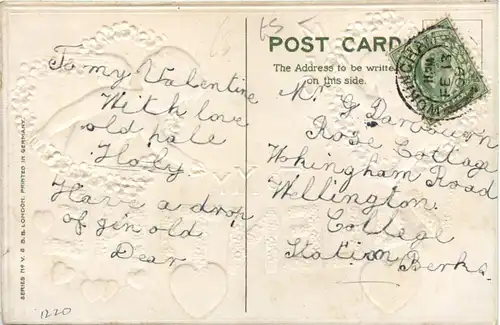 To my Valentine
With love
old pale
Floby.
Have a drop
of gin old
Dear
POST CARD
The Address to be written
on this side.
Mr G
Rose Cottage
Wokingham Road
Wellington
College
Station Berks.
WOKINGHAM
FE 13
SERIES No V. S B. B. LONDON. PRINTED IN GERMANY.
1220